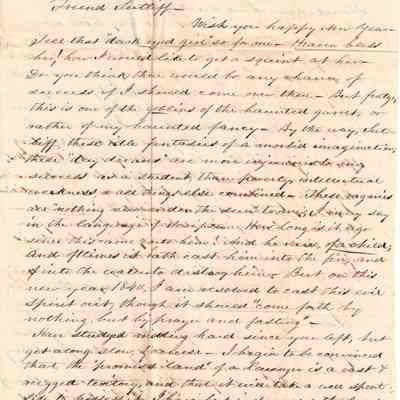 Friend Sutliff —
Wish you happy New Year
I see that "dark eyed girl" is for me — Heaven bless
her! how I would like to get a squint at her —
Do you think there would be any chance of
success if I should come over there — But
this is one of the goblins of the haunted
rather of my haunted fancy — By the way, Sut-
liff, these idle fantasies of a morbid imagination,
these "day dreams" are more injurious to my
success as a student, than poverty, intellectual
weakness & all things else combined — These vagaries
are "nothing new under the sun" to me; I may say
in the language of "How long is it ago
since this came unto him? And he said, of a child;
And ofttimes it hath cast him into the fire, and
into the waters to destroy him." — But on this
new year, 1840, I am resolved to cast this evil
spirit out, though it should "come forth by
nothing, but by prayer and fasting" —
Have studied hard since you left, but
get along slow, — I begin to be convinced
that the "promised land" of a Lawyer is a vast &
rugged territory, and that it will take a